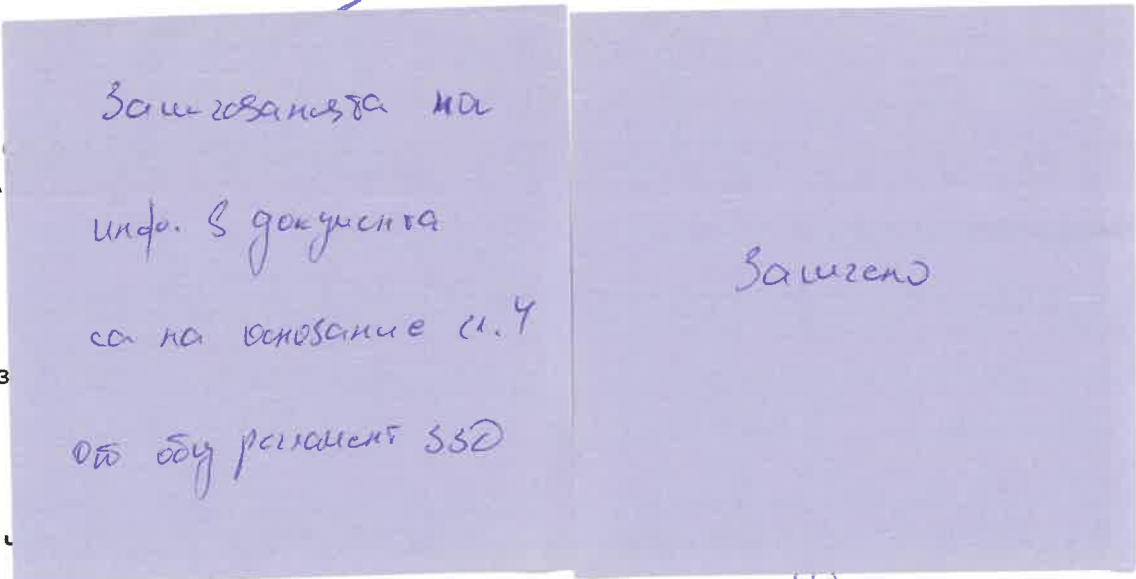 Заличаванията на
инфо. в документа
са на основание чл. 4
от общ регламент ЗЗД
Заличено